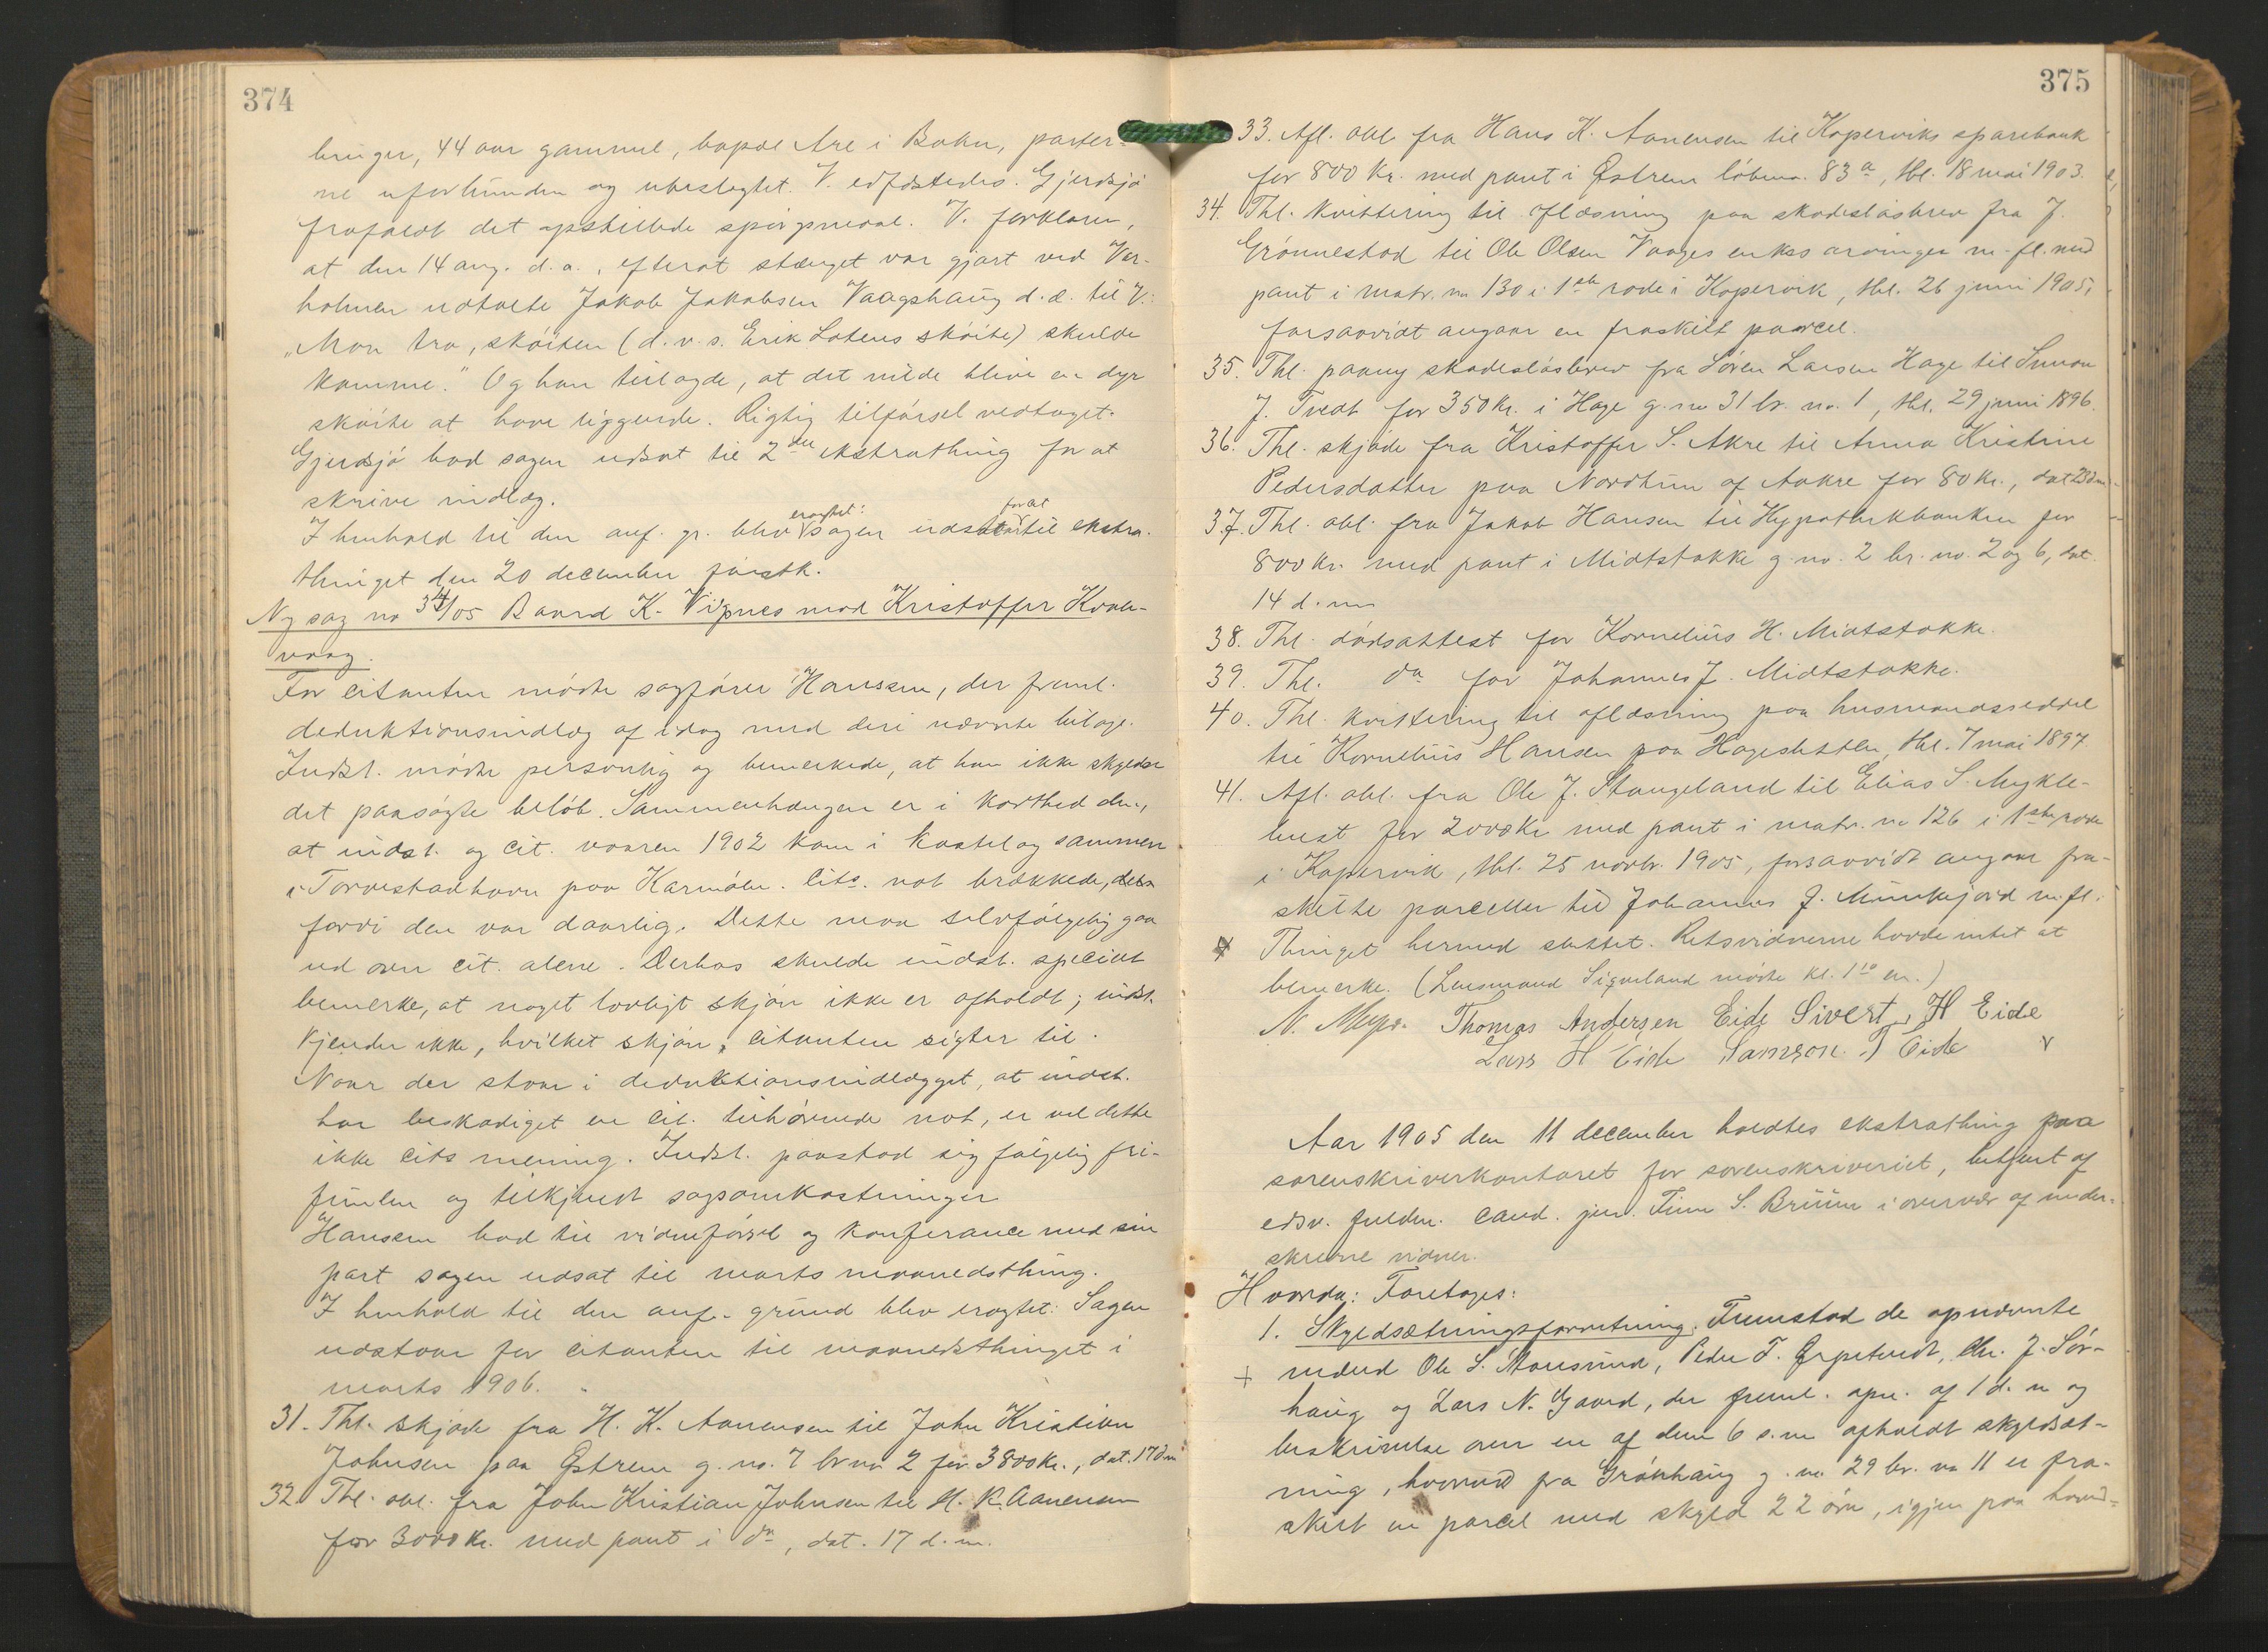 374
bruger, 44 aar gammel, bopæl Are i Bokn, parter-
ne uforbunden og ubeslegtet. V. edfæstedes. Gjerdsjø
frafaldt det opstillede spørgsmaal. V. forklarer,
at den 14 aug. d. a., efterat stænget var gjort ved Var-
holmen udtalte Jakob Jakobsen Vaagshaug d. æ. til V.:
„Mon tro, skøiten (d. v. s. Erik Lotens skøite) skulde
komme." Og han tillagde, at det vilde blive en dyr
skøite at have liggende. Rigtig tilførsel vedtaget.
Gjerdsjø bad sagen udsat til 2det ekstrathing for at
skrive indlæg.
I henhold til den anf. gr. blev eragtet: sagen udsættes til ekstra-
thinget den 20 december førstk.
Ny sag no 34/05 Baard K. Vignes mod Kristoffer Kvale-
vaag.
For citanten mødte sagfører Hanssen, der freml.
deduktionsindlæg af idag med deri nævnte bilage.
Indst. mødte personlig og bemerkede, at han ikke skylder
det paasøgte beløb. Sammenhængen er i korthed den,
at indst. og cit. vaaren 1902 kom i kastelag sammen
i Torvestadhavn paa Karmøen. Cits. not brækkede, 
fordi den var daarlig. Dette maa selvfølgelig gaa
ud over cit. alene. Derhos skulde indst. specielt
bemerke, at noget lovligt skjøn ikke er afholdt; indst.
kjender ikke, hvilket skjøn, citanten sigter til.
Naar der staar i deduktionsindlægget, at indst.
har beskadiget en cit. tilhørende not, er vel dette
ikke cits mening. Indst. paastod sig følgelig fri-
funden og tilkjendt sagsomkostninger
Hanssen bad til vidneførsel og konferance med sin
part sagen udsat til marts maanedsthing.
I henhold til den anf. grund blev eragtet: Sagen
udstaar for citanten til maanedsthinget i
marts 1906.
31. Thl. skjøde fra H. K. Aanensen til John Kristian
Johnsen paa Østrem g. no. 7 br no 2 for 3800 kr., dat. 17 d m
32. Thl. obl. fra John Kristian Johnsen til H. K. Aanensen
for 3000 kr. med pant i do, dat. 17 d. m.
375
33. Afl. obl. fra Hans K. Aanensen til Kopervik sparebank
for 800 kr. med pant i Østrem løbeno. 83a, thl. 18 mai 1903.
34. Thl. kvittering til aflæsning paa skadesløsbrev fra J.
Grønnestad til Ole Olsen Vaages enkes arvinger m. fl. med
pant i matr. no 130 i 1ste rode i Kopervik, thl. 26 juni 1905,
forsaavidt angaar en fraskilt parcel.
35. Thl. paany skadesløsbrev fra Søren Larsen Hage til Simon
J. Tvedt for 350 kr. i Hage g. no 31 br. no. 1, thl. 29 juni 1896.
36. Thl. skjøde fra Kristoffer S. Akre til Anna Kristine
Pedersdatter paa Nordhim af Aakre for 80 kr., dat 23 d m
37. Thl. obl. fra Jakob Hansen til Hypothekbanken for
800 kr. med pant i Midtstokke g. no. 2 br. no. 2 og 6, dat.
14 d. m
38. Thl. dødsattest for Kornelius H. Midtstokke.
39. Thl. do for Johannes J. Midtstokke.
40. Thl. kvittering til aflæsning paa husmandsseddel
til Kornelius Hansen paa Hagesletten, thl. 7 mai 1897.
41. Afl. obl. fra Ole J. Stangeland til Elias S. Mykle-
bust for 2000 kr med pant i matr. no 126 i 1ste rode
i Kopervik, thl. 25 novbr. 1905, forsaavidt angaar fra-
skilte parceller til Johannes J. Munkejord m. fl.
Thinget hermed sluttet. Retsvidnerne havde intet at
bemerke. (Lensmand Sigveland mødte kl. 1 10 em.)
N. Meyer. Thomas Andersen Eide Sivert H Eide
Lars H Eide Samson T Eide
Aar 1905 den 11 december holdtes ekstrathing paa
sorenskriverkontoret for sorenskriveriet, betjent af
edsv. fuldm. cand. jur. Finn S. Bruun i overvær af under-
skrevne vidner.
Hvorda: Foretoges:
1. Skyldsætningsforretning. Fremstod de opnævnte
+ mænd Ole S. Aaresund, Peder T. Erpetvedt, Chr. J. Sør-
haug og Lars N. Gaard, der freml. opn. af 1 d. m og
beskrivelse over en af dem 6 s. m afholdt skyldsæt-
ning, hvorved fra Grønhaug g. no 29 br. no 11 er fra-
skilt en parcel med skyld 22 øre, igjen paa hoved-